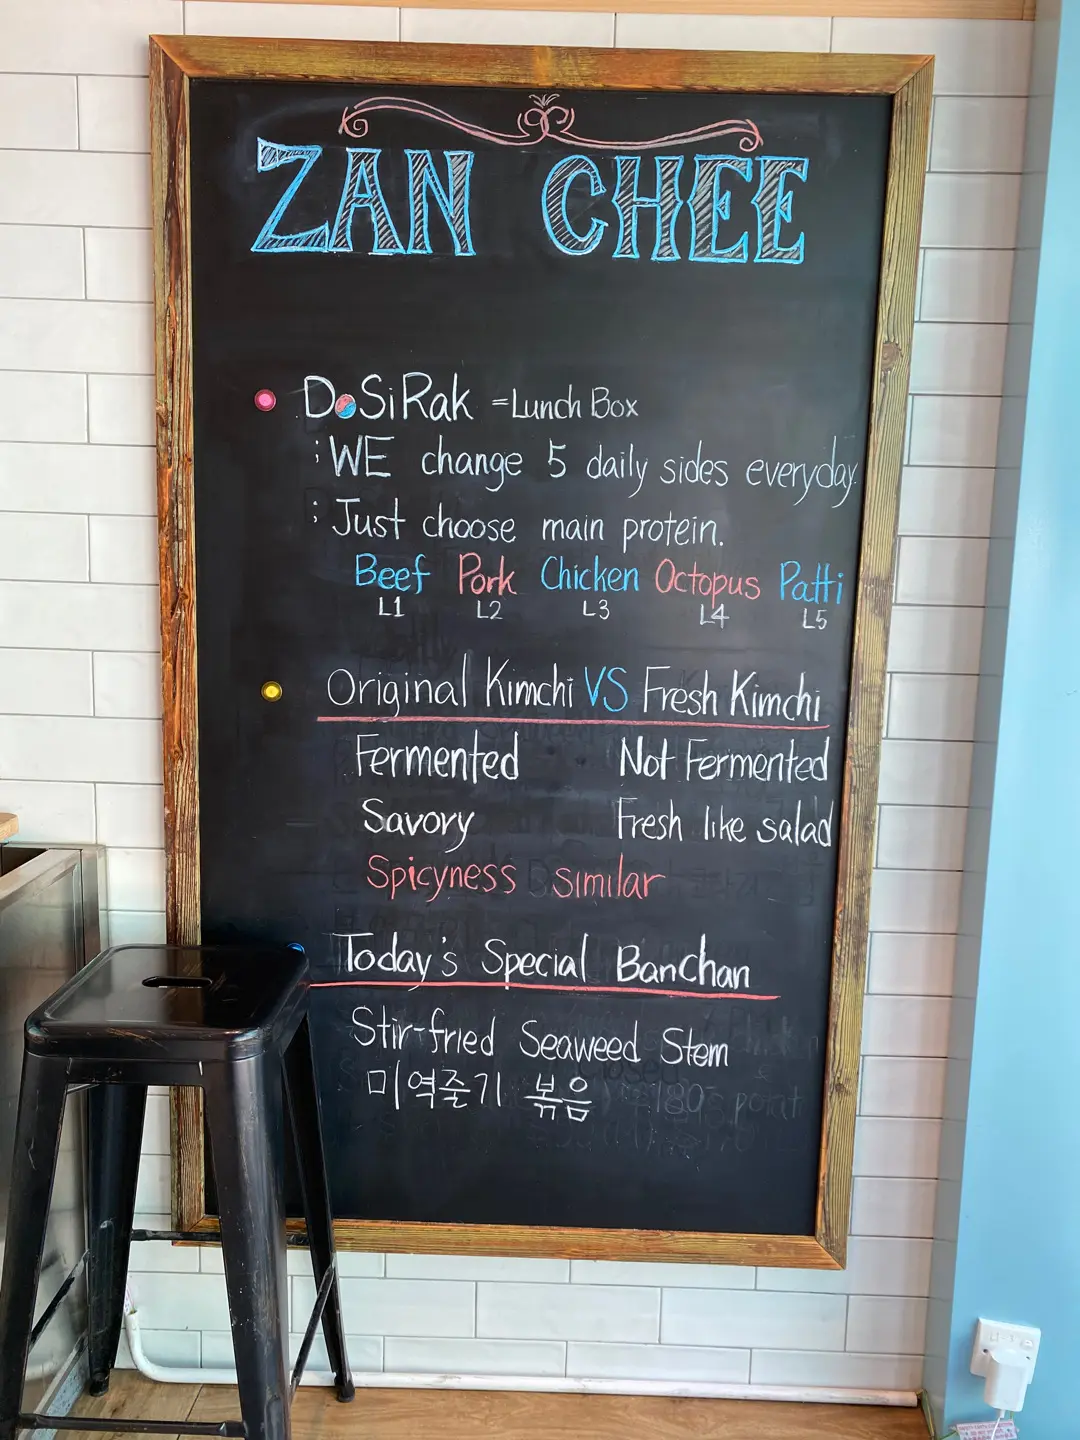 ZAN CHEE
DoSiRak = Lunch Box
; WE change 5 daily sides everyday.
; Just choose main protein.
Beef Pork Chicken Octopus Patti
L1 L2 L3 L4 L5
Original Kimchi VS Fresh Kimchi
Fermented Not Fermented
Savory Fresh like salad
Spicyness similar
Today's Special BanChan
Stir-fried Seaweed Stem
미역줄기 볶음